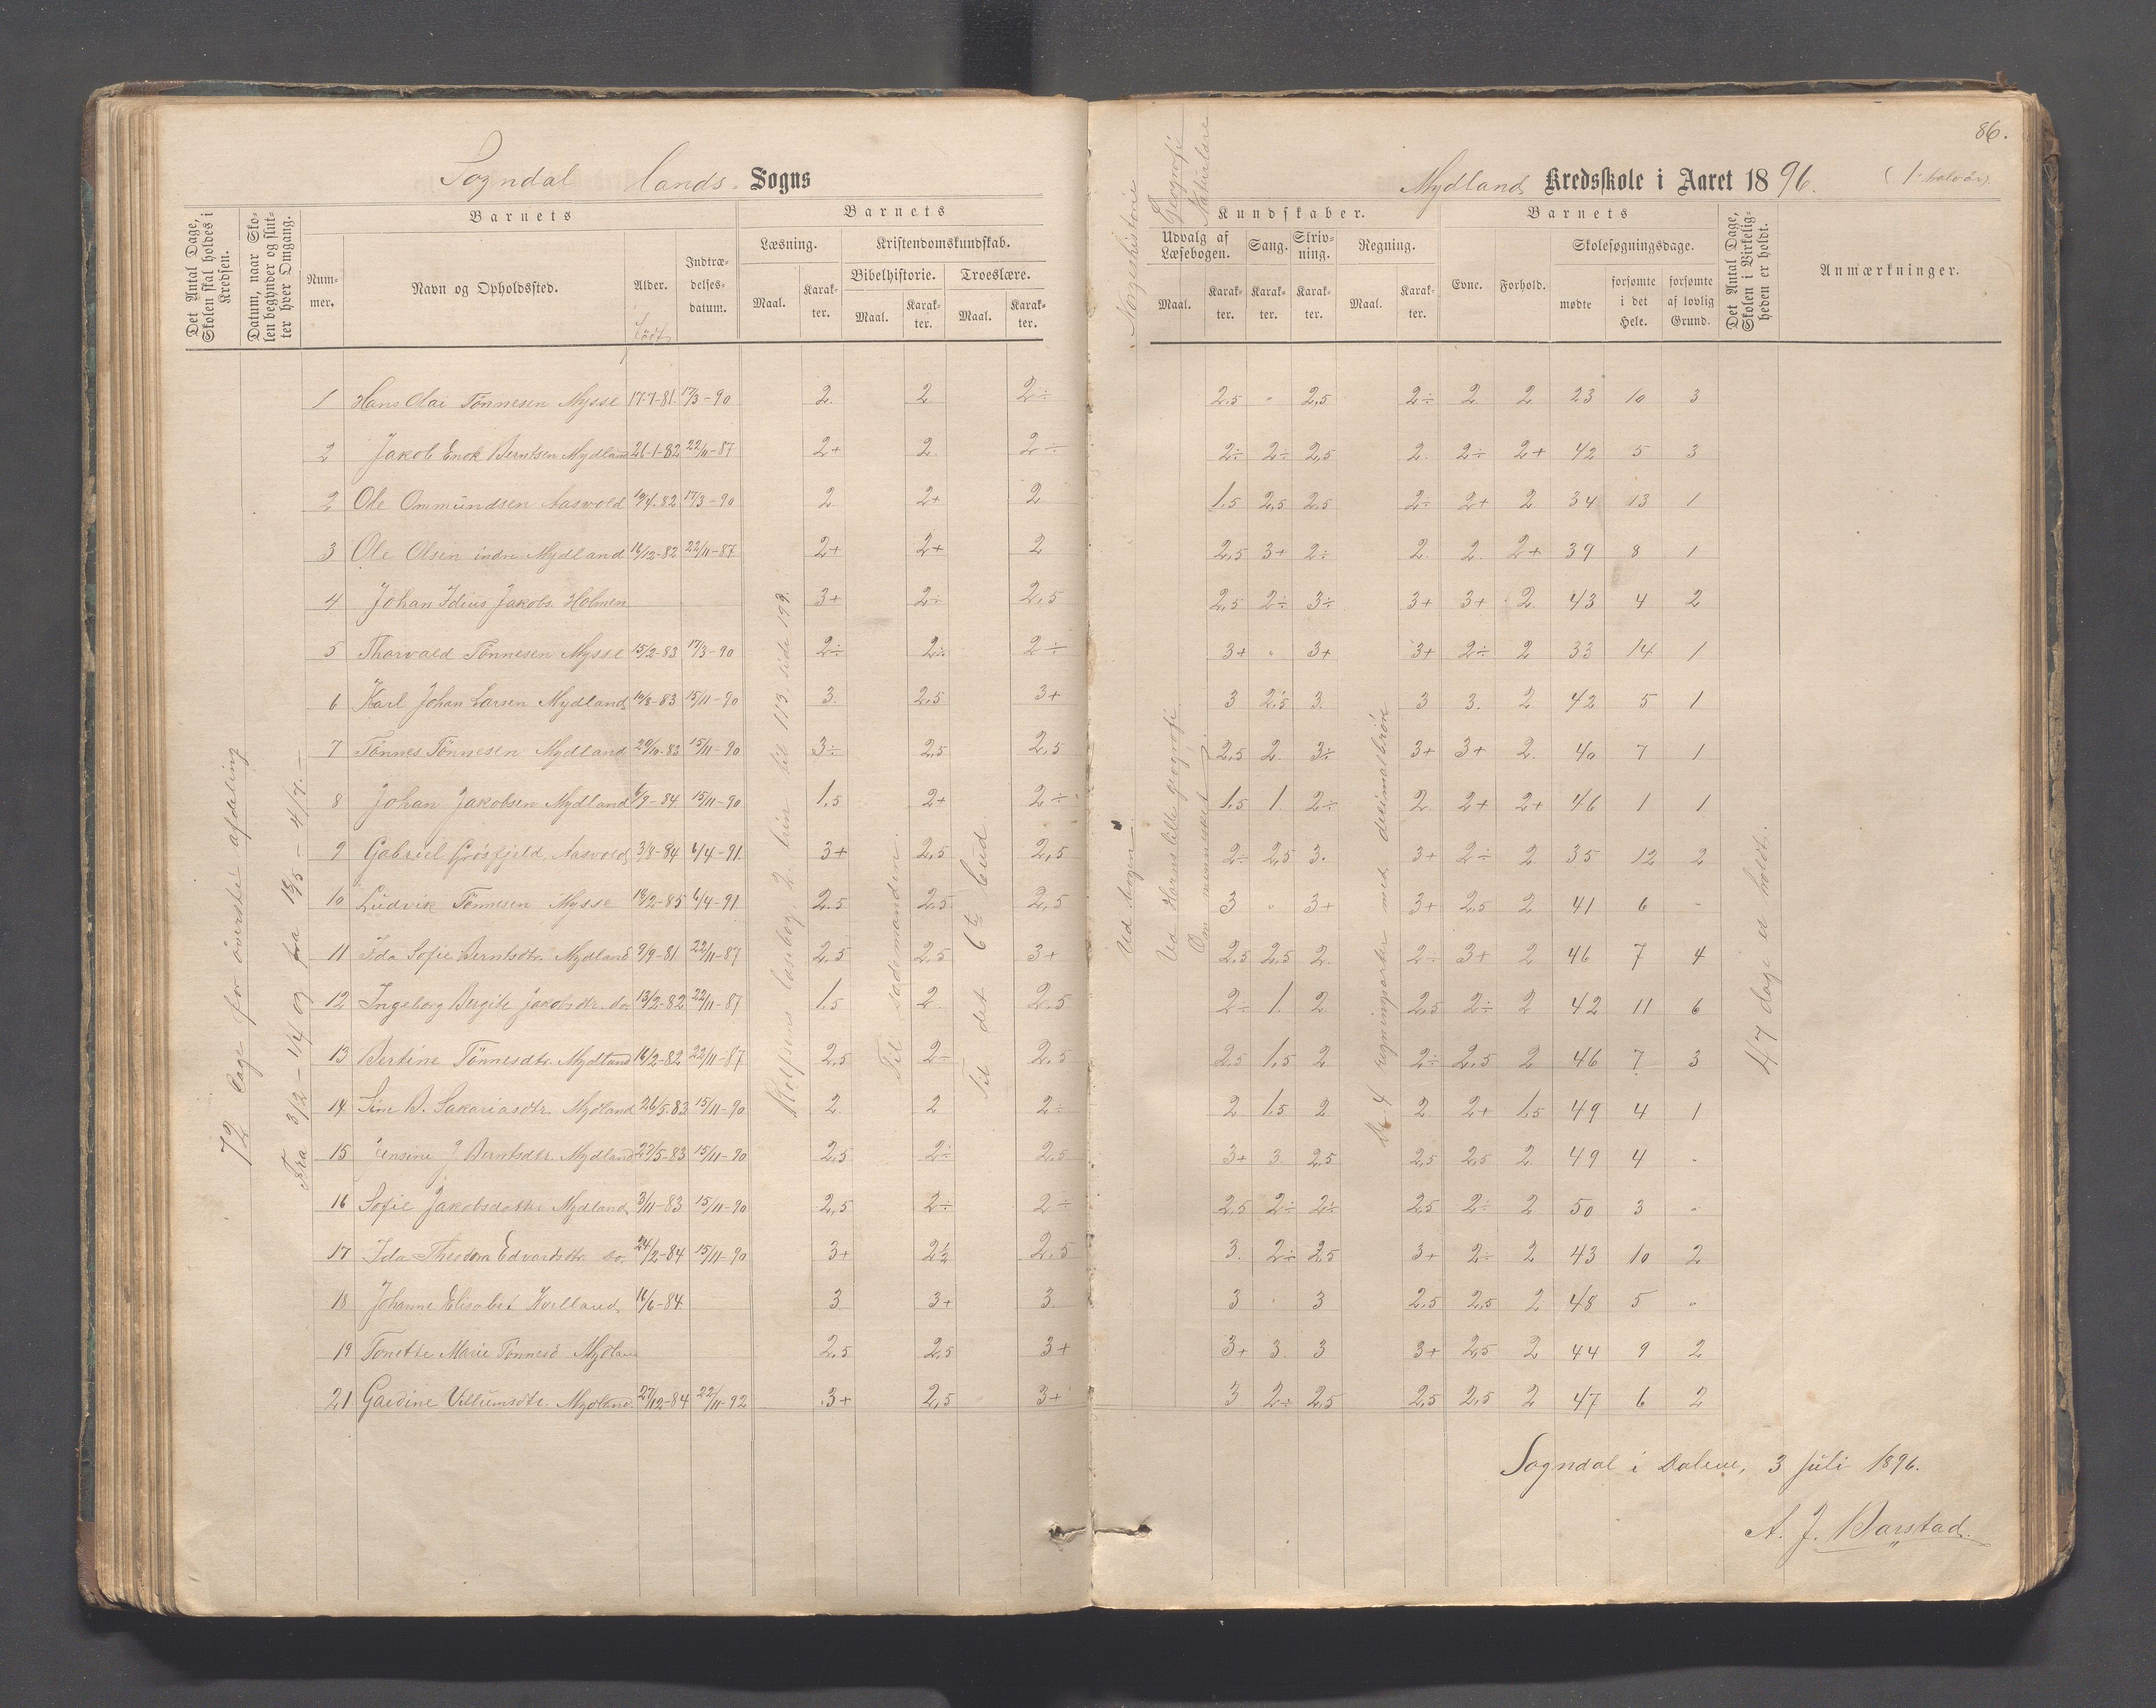 86.
Sogndal lands. Sogns
Mydland Kredsskole i Aaret 1896. (1. halvår)
Det Antal Dage, Skolen skal holdes i Kredsen.
Datum, naar Skolen begynder og slutter hver Omgang.
Barnets
Nummer.
Navn og Opholdssted.
Alder.
født
Indtrædelsesdatum.
Barnets
Læsning.
Maal.
Karakter.
Kristendomskundskab.
Bibelhistorie.
Maal.
Karakter.
Troeslære.
Maal.
Karakter.
Norgeshistorie
Geografi
Naturlære
Kundskaber.
Udvalg af Læsebogen.
Maal.
Karakter.
Sang.
Karakter.
Skrivning.
Karakter.
Regning.
Maal.
Karakter.
Barnets
Evne.
Forhold.
Skolesøgningsdage.
mødte
forsømte i det Hele.
forsømte af lovlig Grund.
Det Antal Dage, Skolen i Virkeligheden er holdt.
Anmærkninger.
72 dage for øverste afdeling
Fra 3/2 - 1/4 og fra 18/5 - 4/7. -
Rolfsens læsebog 2. trin til 113, side 199.
Til sædemanden.
Til det 6te bud.
Ud bogen.
Ud Horns lille geografi.
Om mennesket.
De 4 regningsarter med decimalbrøk
47 dage er holdt.
1 Hans Olai Tönnesen Mysse 17-7-81. 17/3-90 2. 2 2÷ 2.5 " 2,5 2÷ 2 2 23 10 3
2 Jakob Enok Berntsen Mydland 26-1-82 22/11-87 2+ 2. 2÷ 2÷ 2÷ 2,5 2. 2÷ 2+ 42 5 3
2 Ole Ommundsen Aasvold 10/4.82 17/3-90 2. 2+ 2 1.5 2,5 2.5 2÷ 2+ 2 34 13 1
3 Ole Olsen indre Mydland 16/12-82 22/11-87 2+ 2+ 2 2,5 3+ 2÷ 2. 2. 2+ 39 8 1
4 Johan Idius Jakobs. Holmen 3+ 2÷ 2,5 2,5 2÷ 3÷ 3+ 3+ 2 43 4 2
5 Tharvald Tönnesen Mysse 15/2-83 17/3-90 2÷ 2÷ 2÷ 3+ " 3+ 3+ 2÷ 2 33 14 1
6 Karl Johan Larsen Mydland 10/8-83 15/11-90 3. 2,5 3+ 3 2,5 3. 3 3. 2 42 5 1
7 Tönnes Tönnesen Mydland 29/10-83 15/11-90 3÷ 2,5 2,5 2,5 2. 3÷ 3+ 3+ 2. 40 7 1
8 Johan Jakobsen Mydland 6/9-84 15/11-90 1,5 2+ 2÷ 1,5 1. 2÷ 2. 2+ 2+ 46 1 1
9 Gabriel Grösfjeld Aasvold 3/8-84 6/4-91 3+ 2,5 2,5 2÷ 2,5 3. 3+ 2÷ 2 35 12 2
10 Ludvik Tönnesen Mysse 18/2-85 6/4-91 2.5 2.5 2,5 3 " 3+ 3+ 2,5 2 41 6 -
11 Ida Sofie Berntsdtr. Mydland 9/9-81 22/11-87 2,5 2,5 3+ 2,5 2,5 2. 2÷ 3+ 2 46 7 4
12 Ingeborg Bergite Jakobsdtr. do. 13/2-82 22/11-87 1.5 2. 2.5 2÷ 1. 2 2,5 2÷ 2 42 11 6
13 Bertine Tönnesdtr. Mydland 16/2-82 22/11-87 2,5 2÷ 2.5 2,5 1,5 2 2÷ 2,5 2 46 7 3
14 Sine B. Sakariasdtr. Mydland 26/5.83 15/11-90 2. 2 2÷ 2 1,5 2 2 2+ 1,5 49 4 1
15 Jensine J Berntsdtr. Mydland 29/5-83 15/11-90 2,5 2÷ 2.5 3+ 3. 2,5 2,5 2,5 2 49 4 -
16 Sofie Jakobsdatter Mydland 3/11-83 15/11-90 2,5 2÷ 2÷ 2,5 2÷ 2÷ 2,5 2÷ 2 50 3 "
17 Ida Theodora Edvardsdtr. do. 24/2-84 15/11-90 3+ 2½ 2,5 3. 2÷ 2,5 3+ 2÷ 2 43 10 2
18 Johanne Elisabet Kvelland 16/6-84 3 3+ 3. 3 " 3 2,5 2,5 2 48 5 "
19 Tonette Marie Tönnesd Mydland 2,5 2,5 3+ 3+ 3. 3 3+ 2,5 2 44 9 2
21 Gardine Villumsdtr. Mydland 27/12-84 22/11-92 3+ 2,5 3+ 3 2÷ 2,5 2,5 2,5 2 47 6 2
Sogndal i Dalene, 3 juli 1896.
A. J. Barstad.